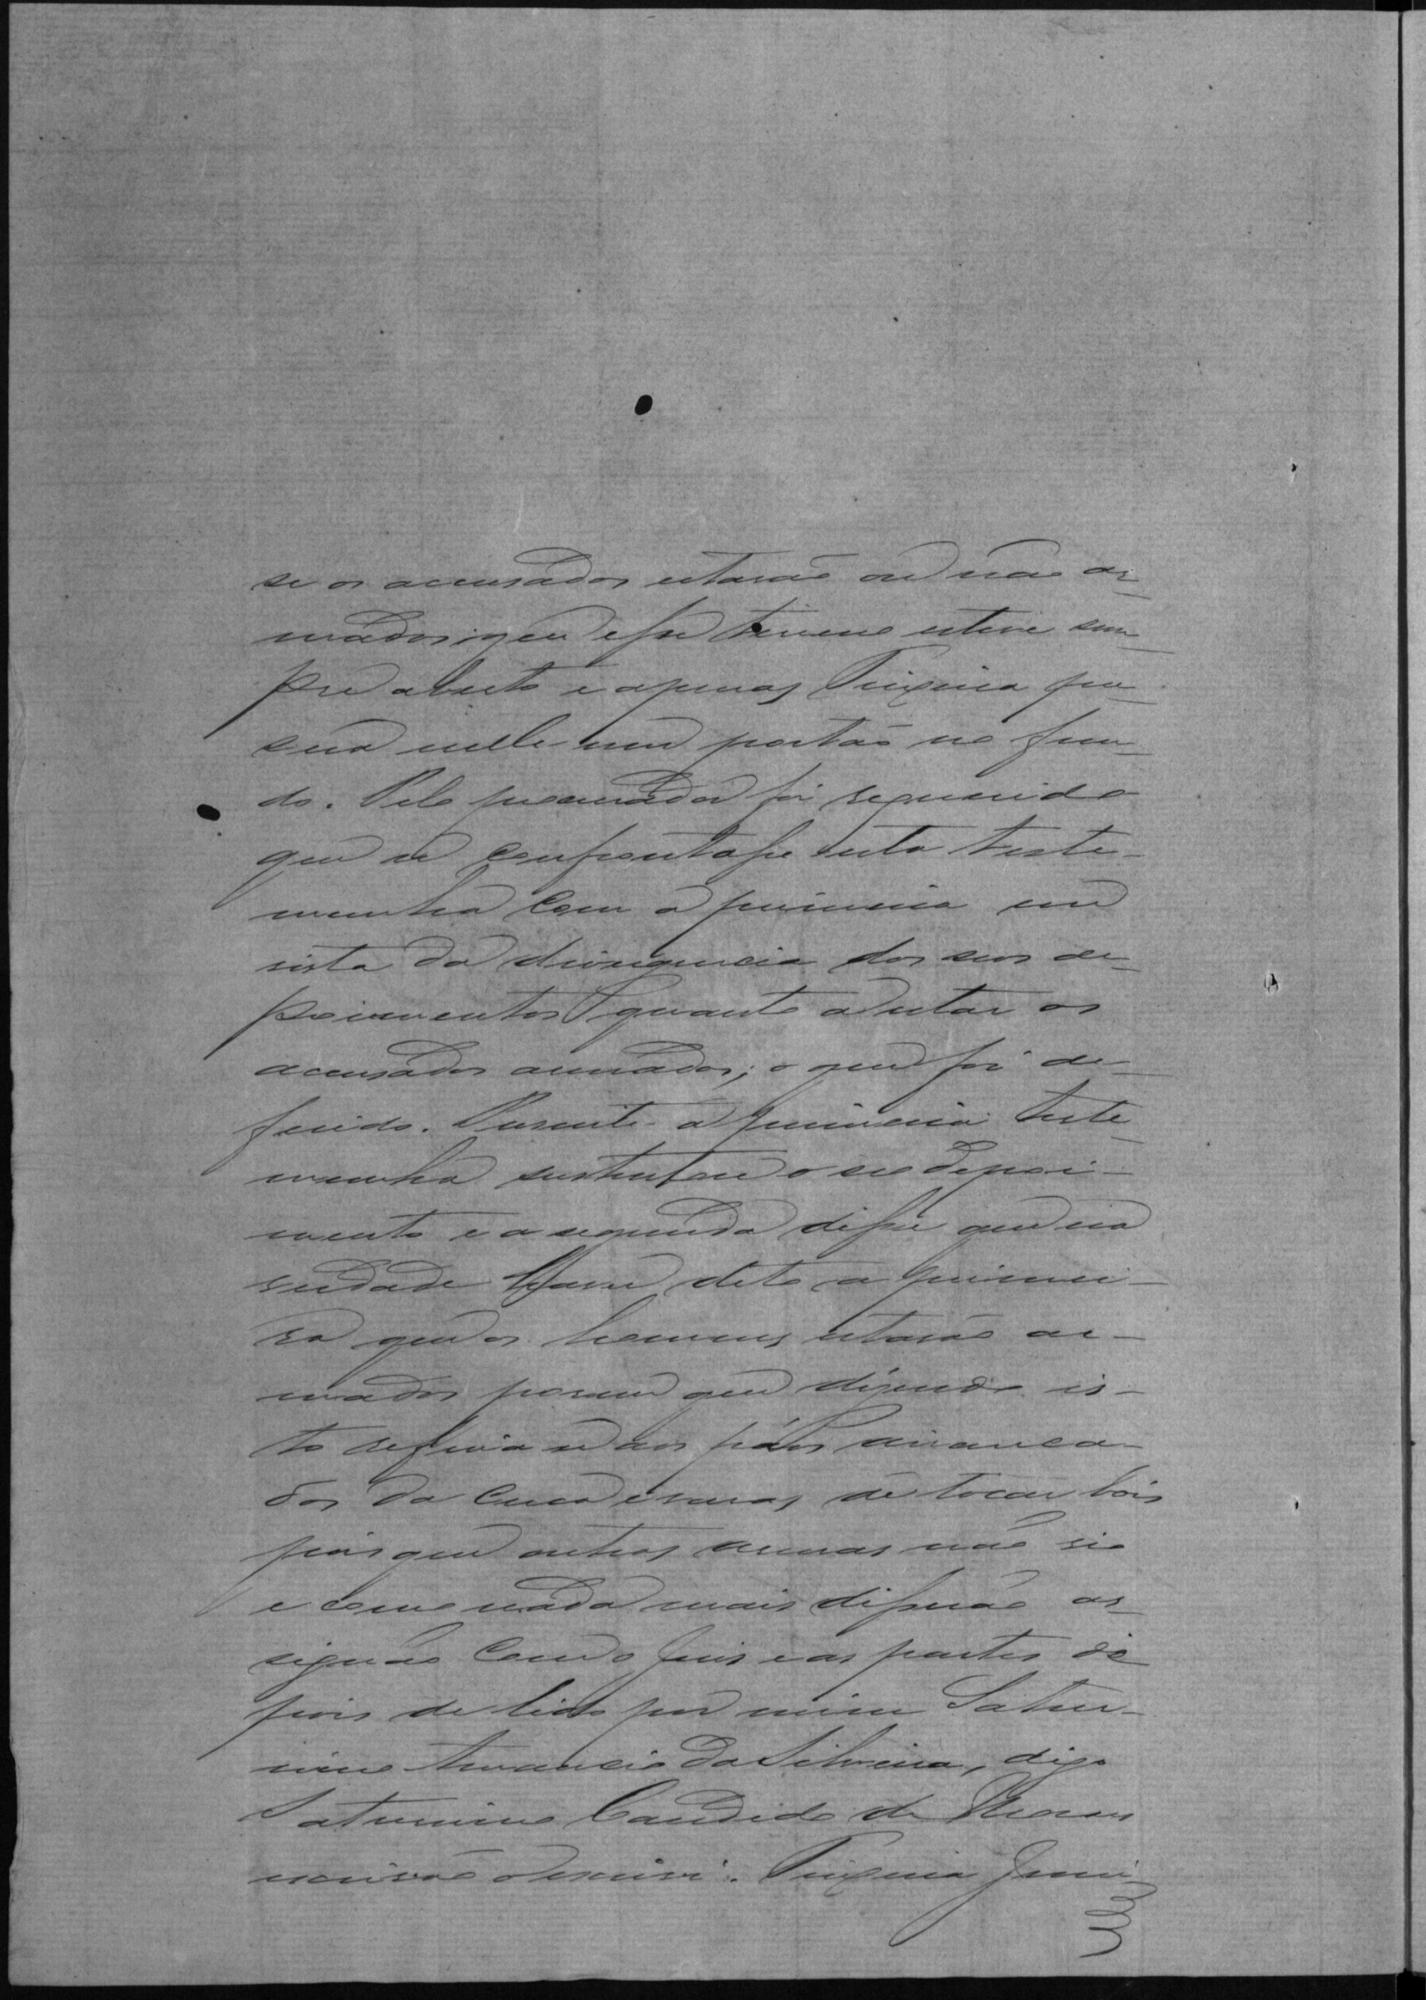 se os accusados estavão ou não ar-
mados; que esse terreno esteve sem-
pre aberto e apenas Teixeira pu-
sera nelle um portão no fun-
do. Pelo procurador foi requerido
que se confrontasse esta teste-
munha com a primeira em
vista da divergencia dos seus de-
poimentos quanto a estar os
accusados armados; o que foi de-
ferido. Presente a primeira teste-
munha sustentou o seo depoi-
mento e a segunda disse que na
verdade havia dito a primei-
ra que os homens estavão ar-
mados porem que dizendo is-
to referia se aos páos arranca-
dos da cerca e varas de tocar bois
pois que outras armas não vio
e como nada mais disserão as-
signão com o Juis e as partes de
pois de lido por mim Satur-
nino Amancio da Silveira, digo
Saturnino Candido de Moraes
escrivão o escrivi. Teixeira Juni